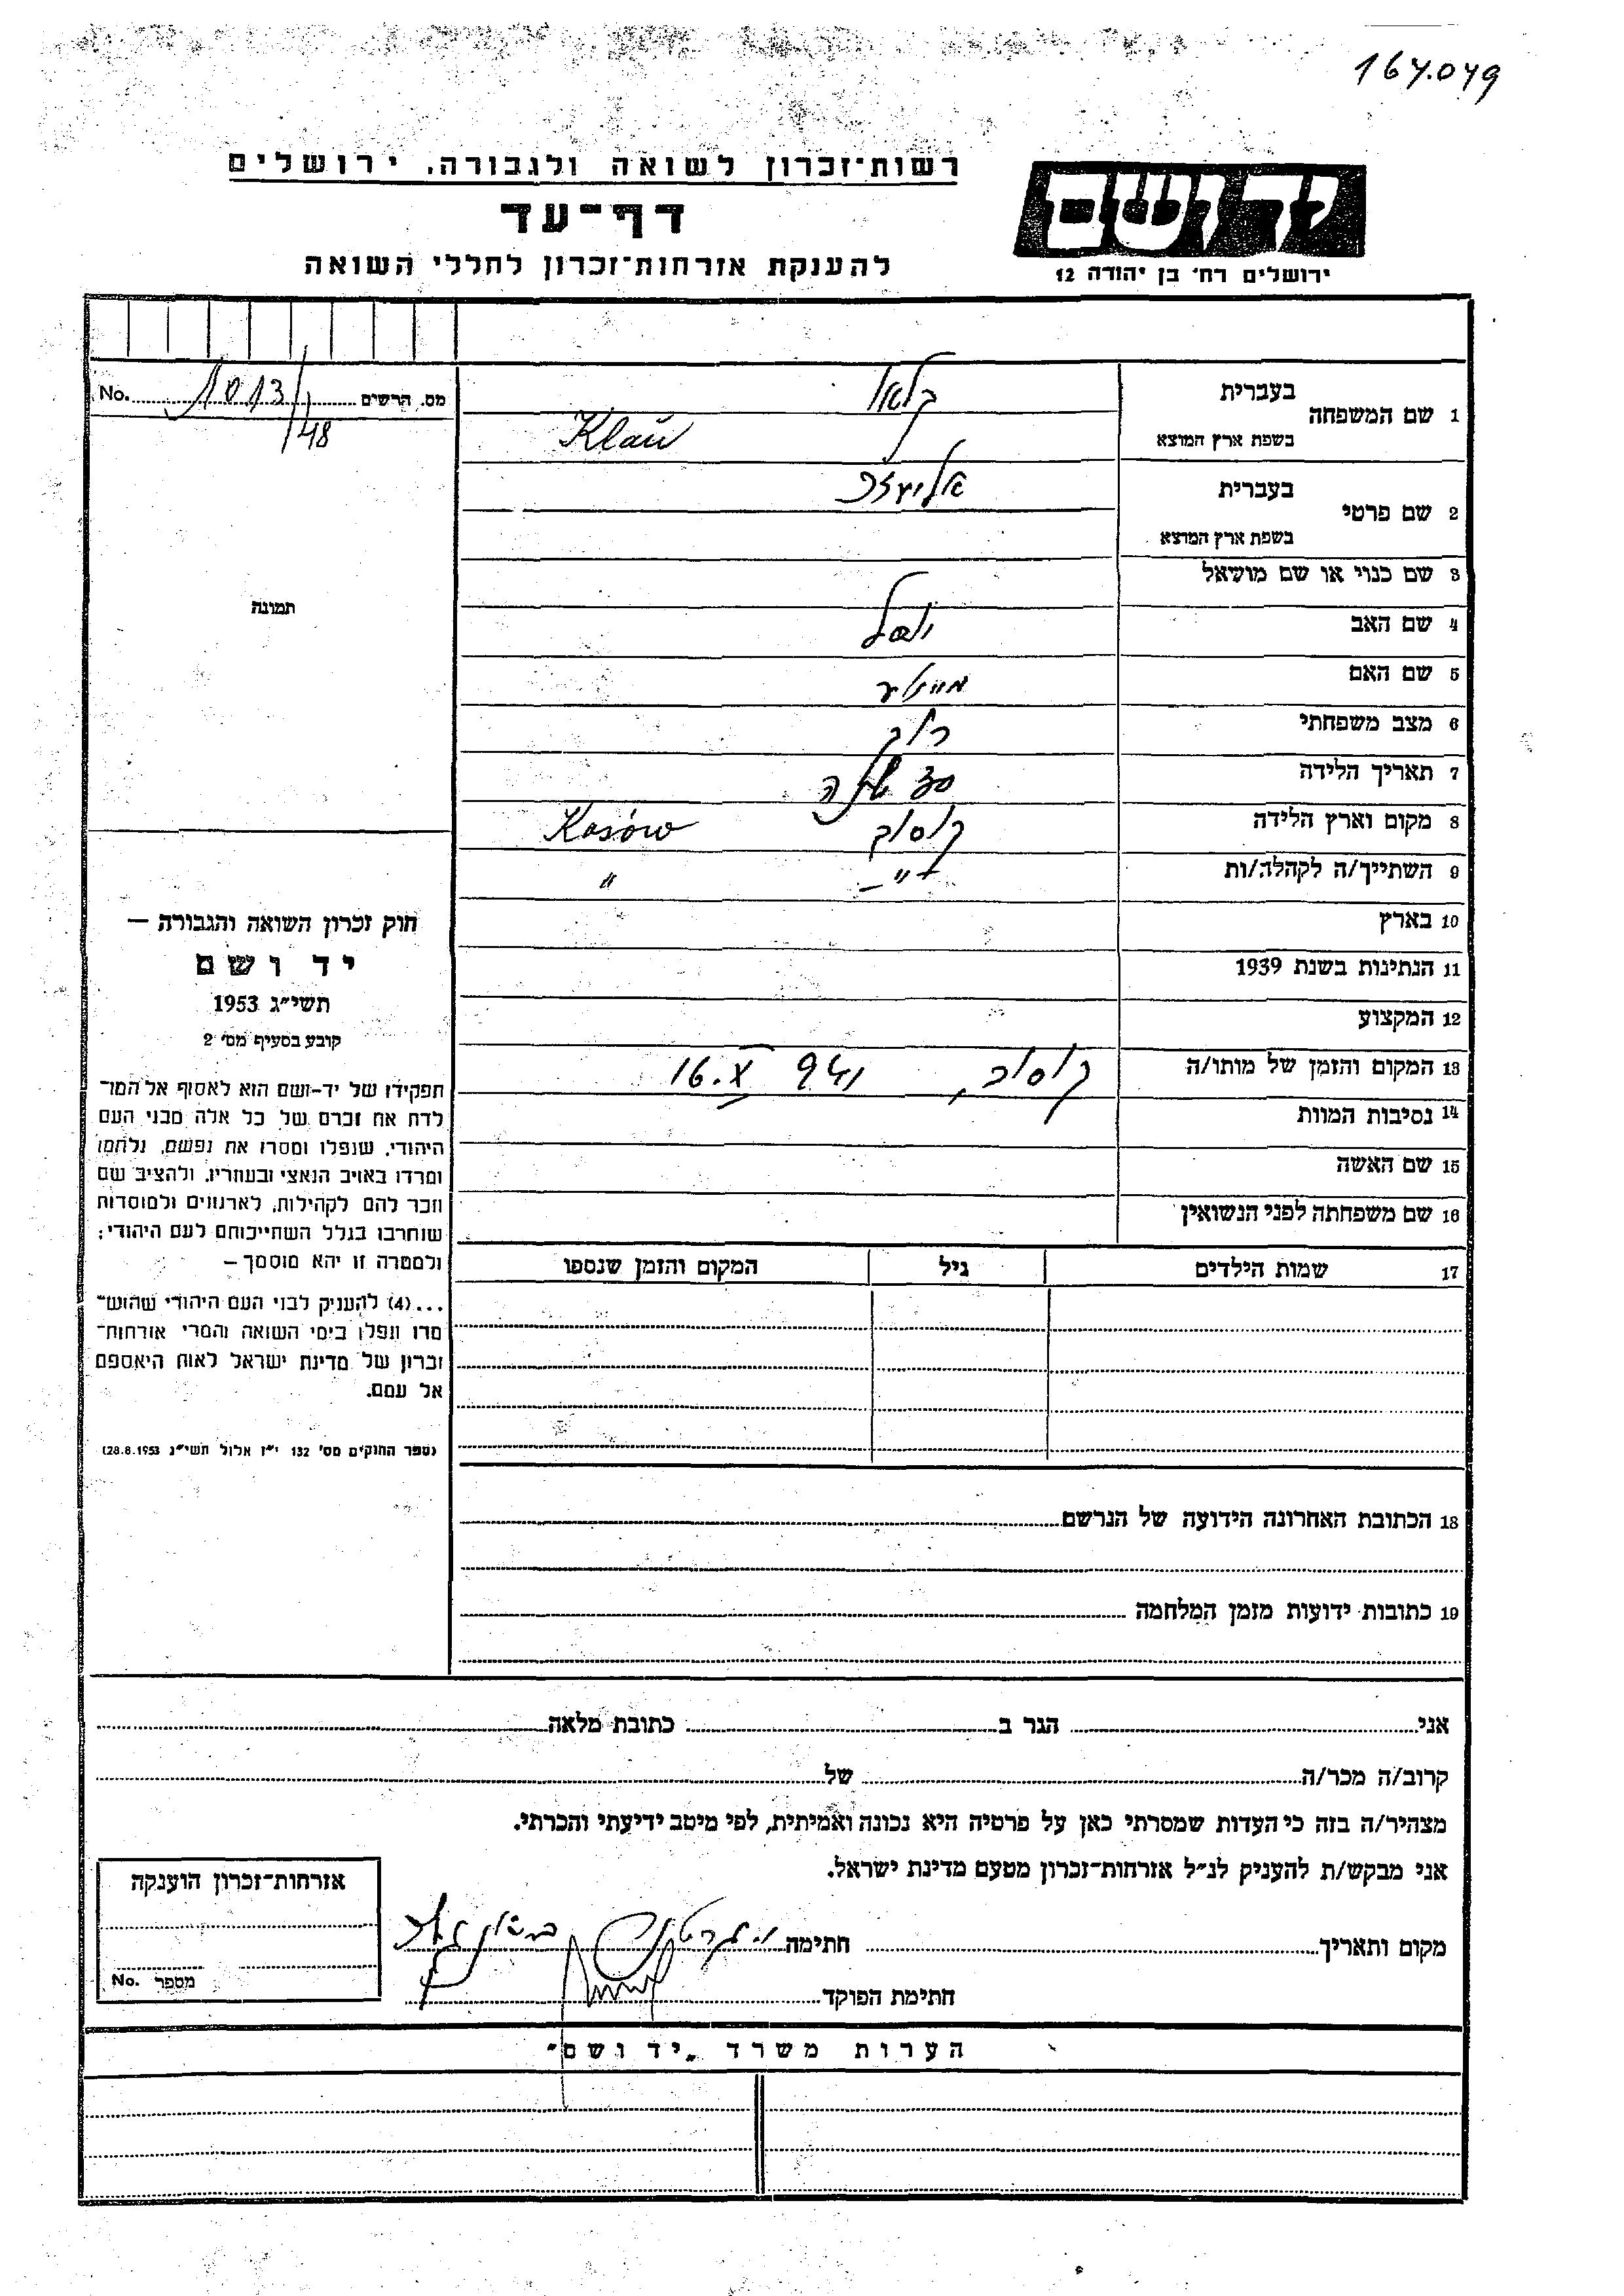 167.079
רשות־זכרון לשואה ולגבורה, ירושלים
דף־עד
להענקת אזרחות־זכרון לחללי השואה
יד ושם
ירושלים רח' בן יהודה 12
מס. הרשים 1013/48 No.
1 שם המשפחה
בעברית קלאו
בשפת ארץ המוצא Klaŭ
2 שם פרטי
בעברית אליעזר
בשפת ארץ המוצא
3 שם כנוי או שם מושאל
4 שם האב יוסל
5 שם האם
6 מצב משפחתי רווק
7 תאריך הלידה 30 שנה
8 מקום וארץ הלידה קוסוב Kosów
9 השתייך/ה לקהלה/ות -"- "
10 בארץ
11 הנתינות בשנת 1939
12 המקצוע
13 המקום והזמן של מותו/ה קוסוב, 16.X 941
14 נסיבות המוות
15 שם האשה
16 שם משפחתה לפני הנשואין
17 שמות הילדים גיל המקום והזמן שנספו
תמונה
חוק זכרון השואה והגבורה —
יד ושם
תשי"ג 1953
קובע בסעיף מס' 2
תפקידו של יד-ושם הוא לאסוף אל המו־
לדת את זכרם של כל אלה מבני העם
היהודי, שנפלו ומסרו את נפשם, נלחמו
ומרדו באויב הנאצי ובעוזריו, ולהציב שם
וזכר להם לקהילות, לארגונים ולמוסדות
שנחרבו בגלל השתייכותם לעם היהודי;
ולמטרה זו יהא מוסמך —
...(4) להעניק לבני העם היהודי שהוש־
מדו ונפלו בימי השואה והמרי אזרחות־
זכרון של מדינת ישראל לאות היאספם
אל עמם.
(ספר החוקים מס' 132 י"ז אלול תשי"ג 28.8.1953)
18 הכתובת האחרונה הידועה של הנרשם
19 כתובות ידועות מזמן המלחמה
אני הגר ב כתובת מלאה
קרוב/ה מכר/ה של
מצהיר/ה בזה כי העדות שמסרתי כאן על פרטיה היא נכונה ואמיתית, לפי מיטב ידיעתי והכרתי.
אני מבקש/ת להעניק לנ"ל אזרחות־זכרון מטעם מדינת ישראל.
מקום ותאריך חתימה
חתימת הפוקד
אזרחות־זכרון הוענקה
מספר No.
הערות משרד "יד ושם"